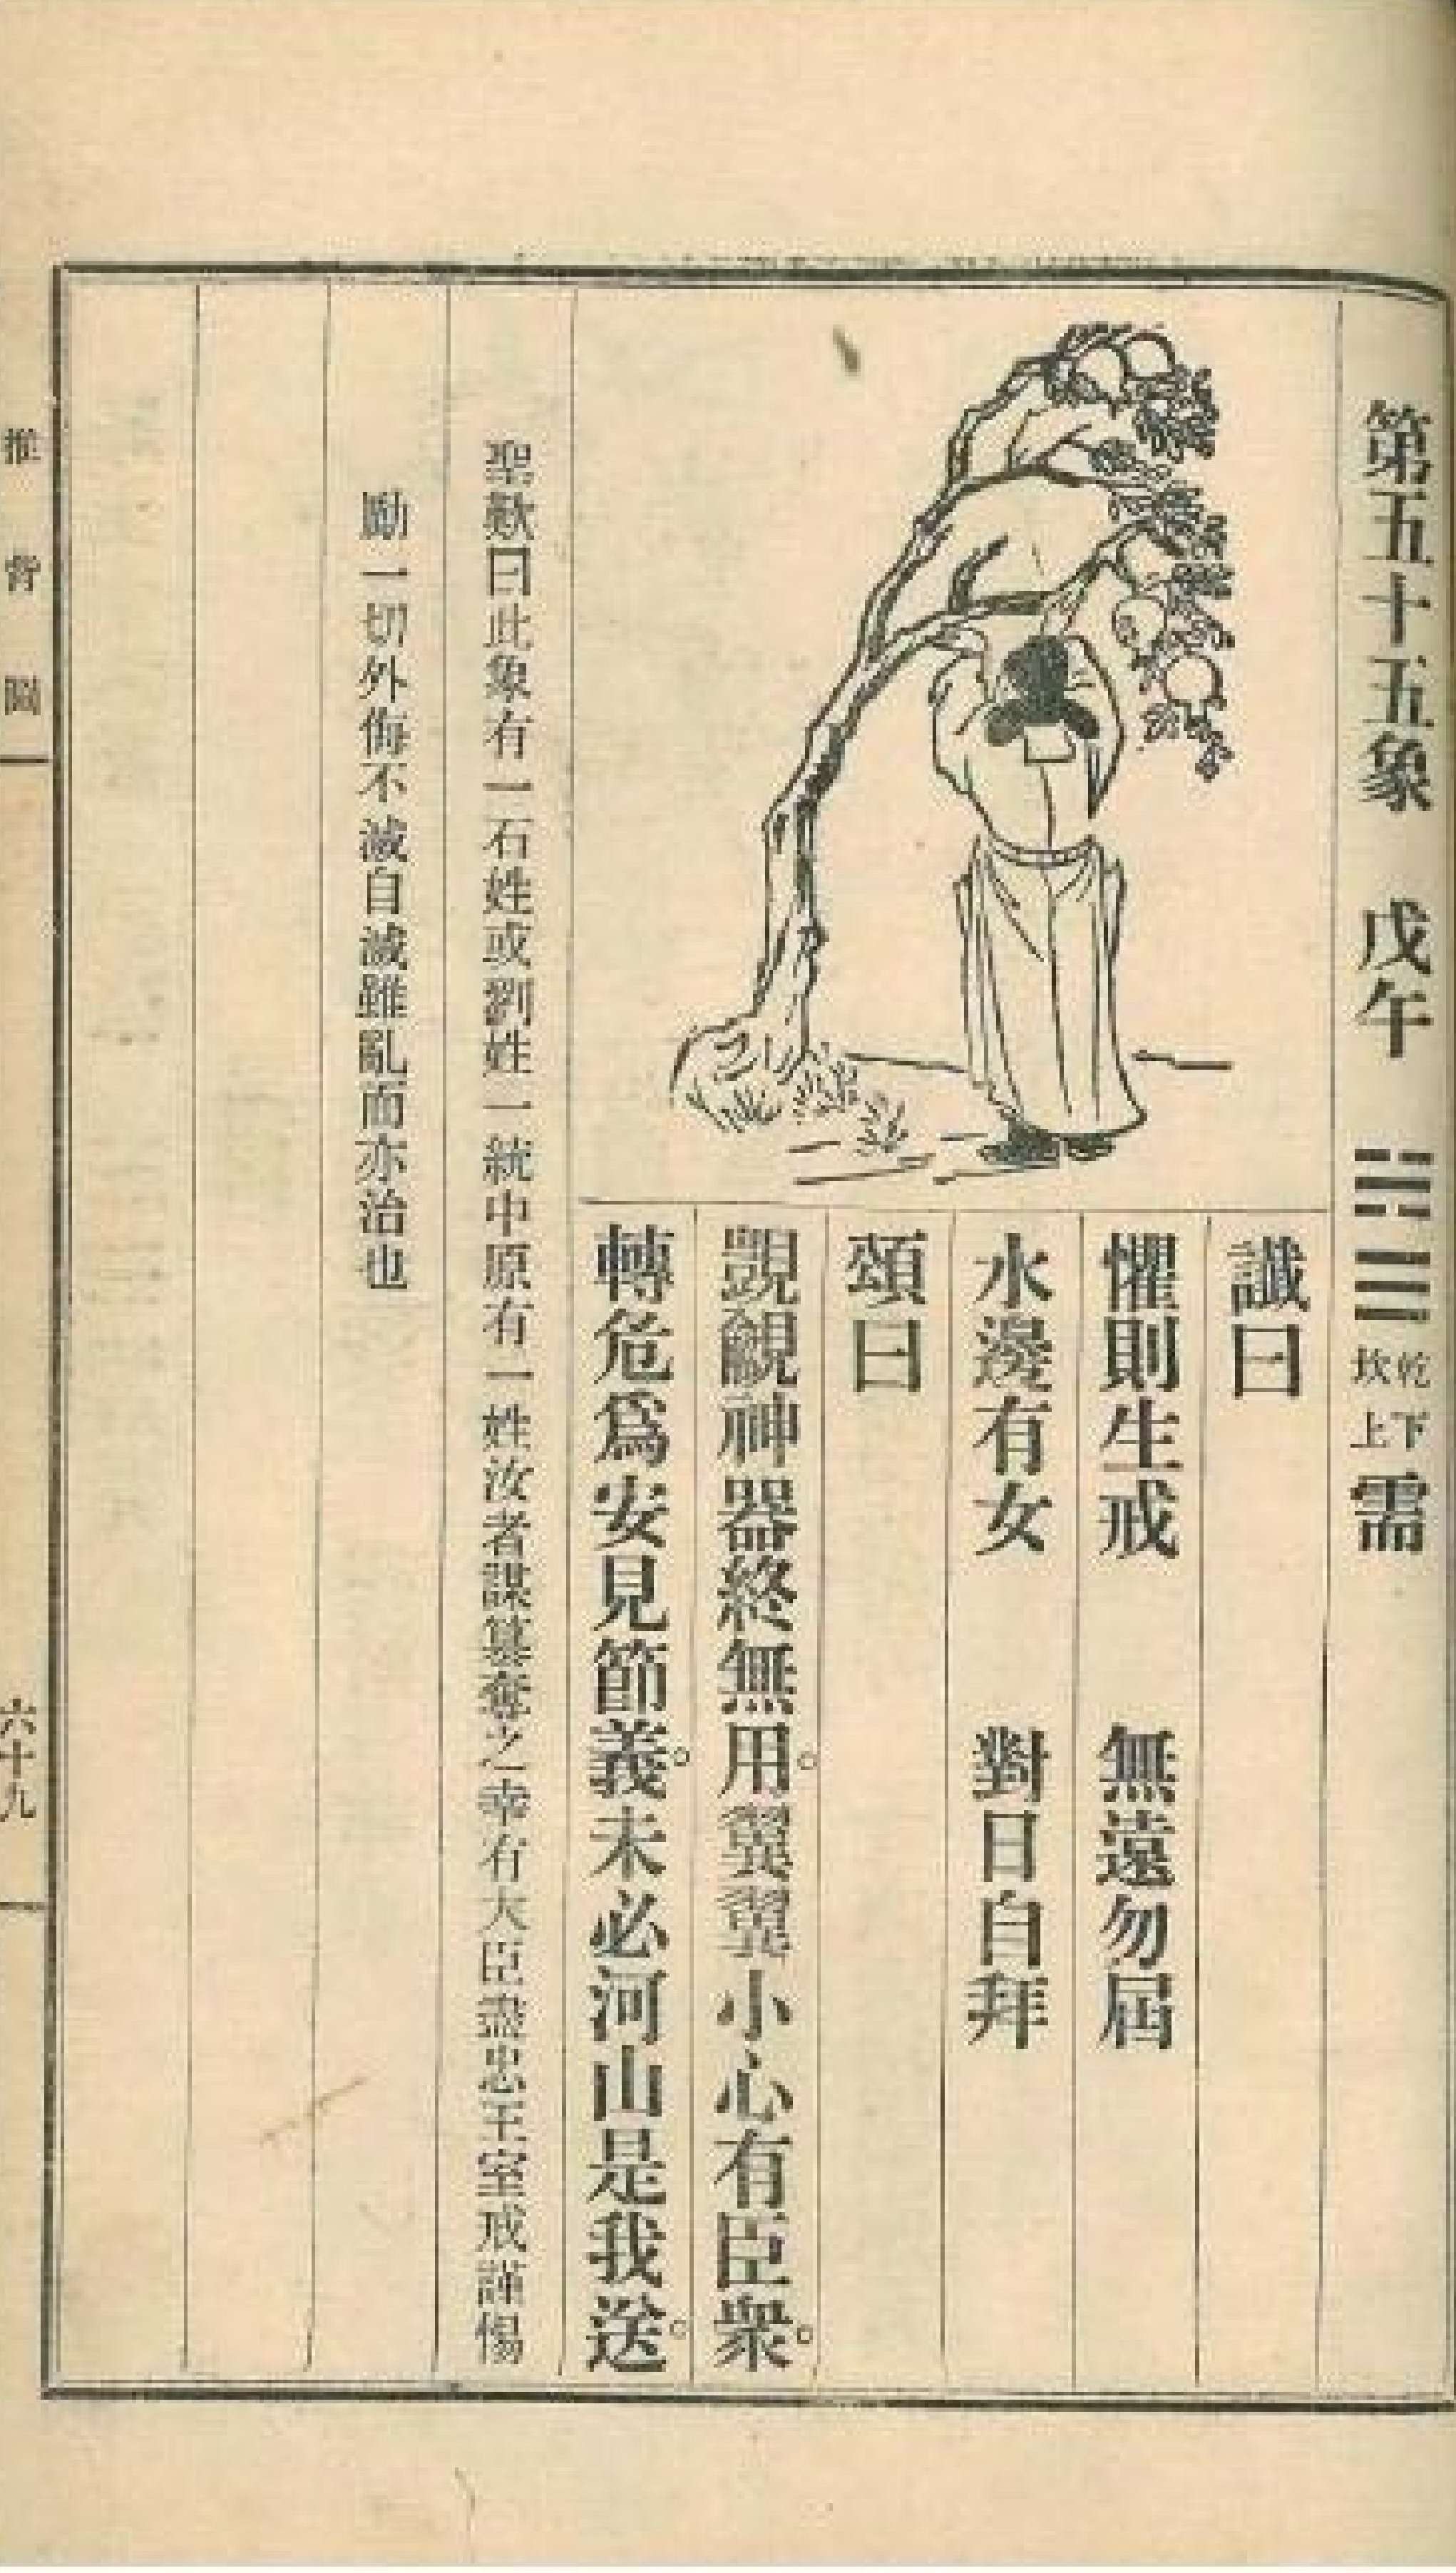 第五十五象 戊午 ䷄ 乾下坎上 需
讖曰
懼則生戒 無遠勿屆
水邊有女 對日自拜
頌曰
覬覦神器終無用。翼翼小心有臣衆。
轉危爲安見節義。未必河山是我送。
聖歎曰此象有一石姓或劉姓一統中原有一姓汝者謀篡奪之幸有大臣盡忠王室戒謹惕
勵一切外侮不滅自滅雖亂而亦治也
推背圖
六十九